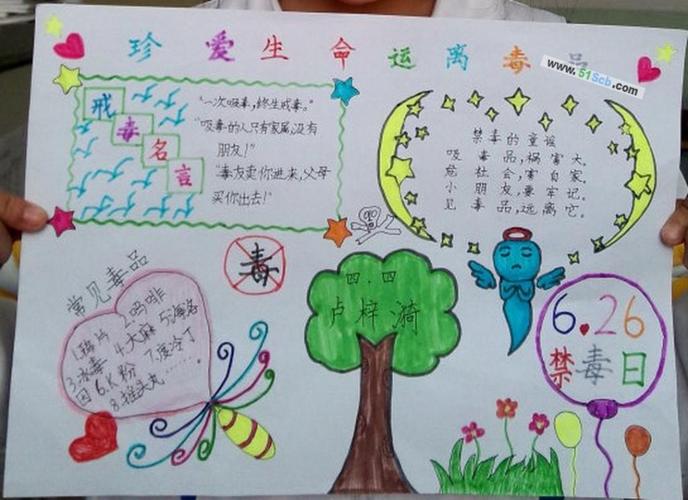 珍爱生命运离毒品
www.51Scb.com
戒毒名言
"一次吸毒,终生戒毒。"
"吸毒的人只有家属,没有
朋友!"
"毒友卖你进来,父母
买你出去!"
禁毒的童谣
吸毒品,祸害大,
危社会,害自家,
小朋友,要牢记。
见毒品,远离它。
毒
常见毒品
1.鸦片 2.吗啡
3.冰毒 4.大麻 5.海洛
因 6.K粉 7.度冷丁
8.摇头丸……
四.四
卢梓漪
6.26
禁毒日